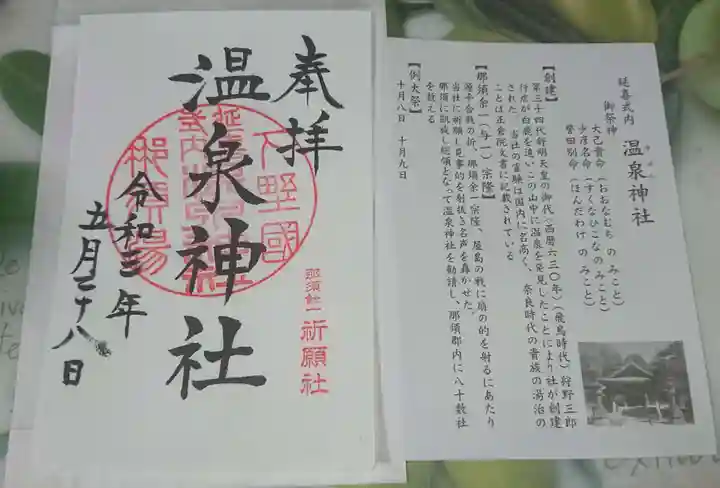 奉拝
温泉神社
令和三年
五月二十八日
下野國
那須余一
祈願社
延喜式内 温泉神社
御祭神
大己貴命(おおなむち のみこと)
少彦名命(すくなひこな のみこと)
誉田別命(ほんだわけ のみこと)
【創建】
第三十四代舒明天皇の御代(西暦六三〇年)(飛鳥時代)狩野三郎
行広が白鹿を追いこの山中に温泉を発見したことにより社が創建
された 当社の霊験は国内に名高く、奈良時代の貴族の湯治の
ことは正倉院文書に記載されている
【那須余一(与一)宗隆】
源平合戦の折、那須余一宗隆、屋島の戦に扇の的を射るにあたり
当社に祈願し見事的を射抜き名声を轟かせた。
那須に凱旋し総領となって温泉神社を勧請し、那須郡内に八十数社
を数える
【例大祭】
十月八日 十月九日